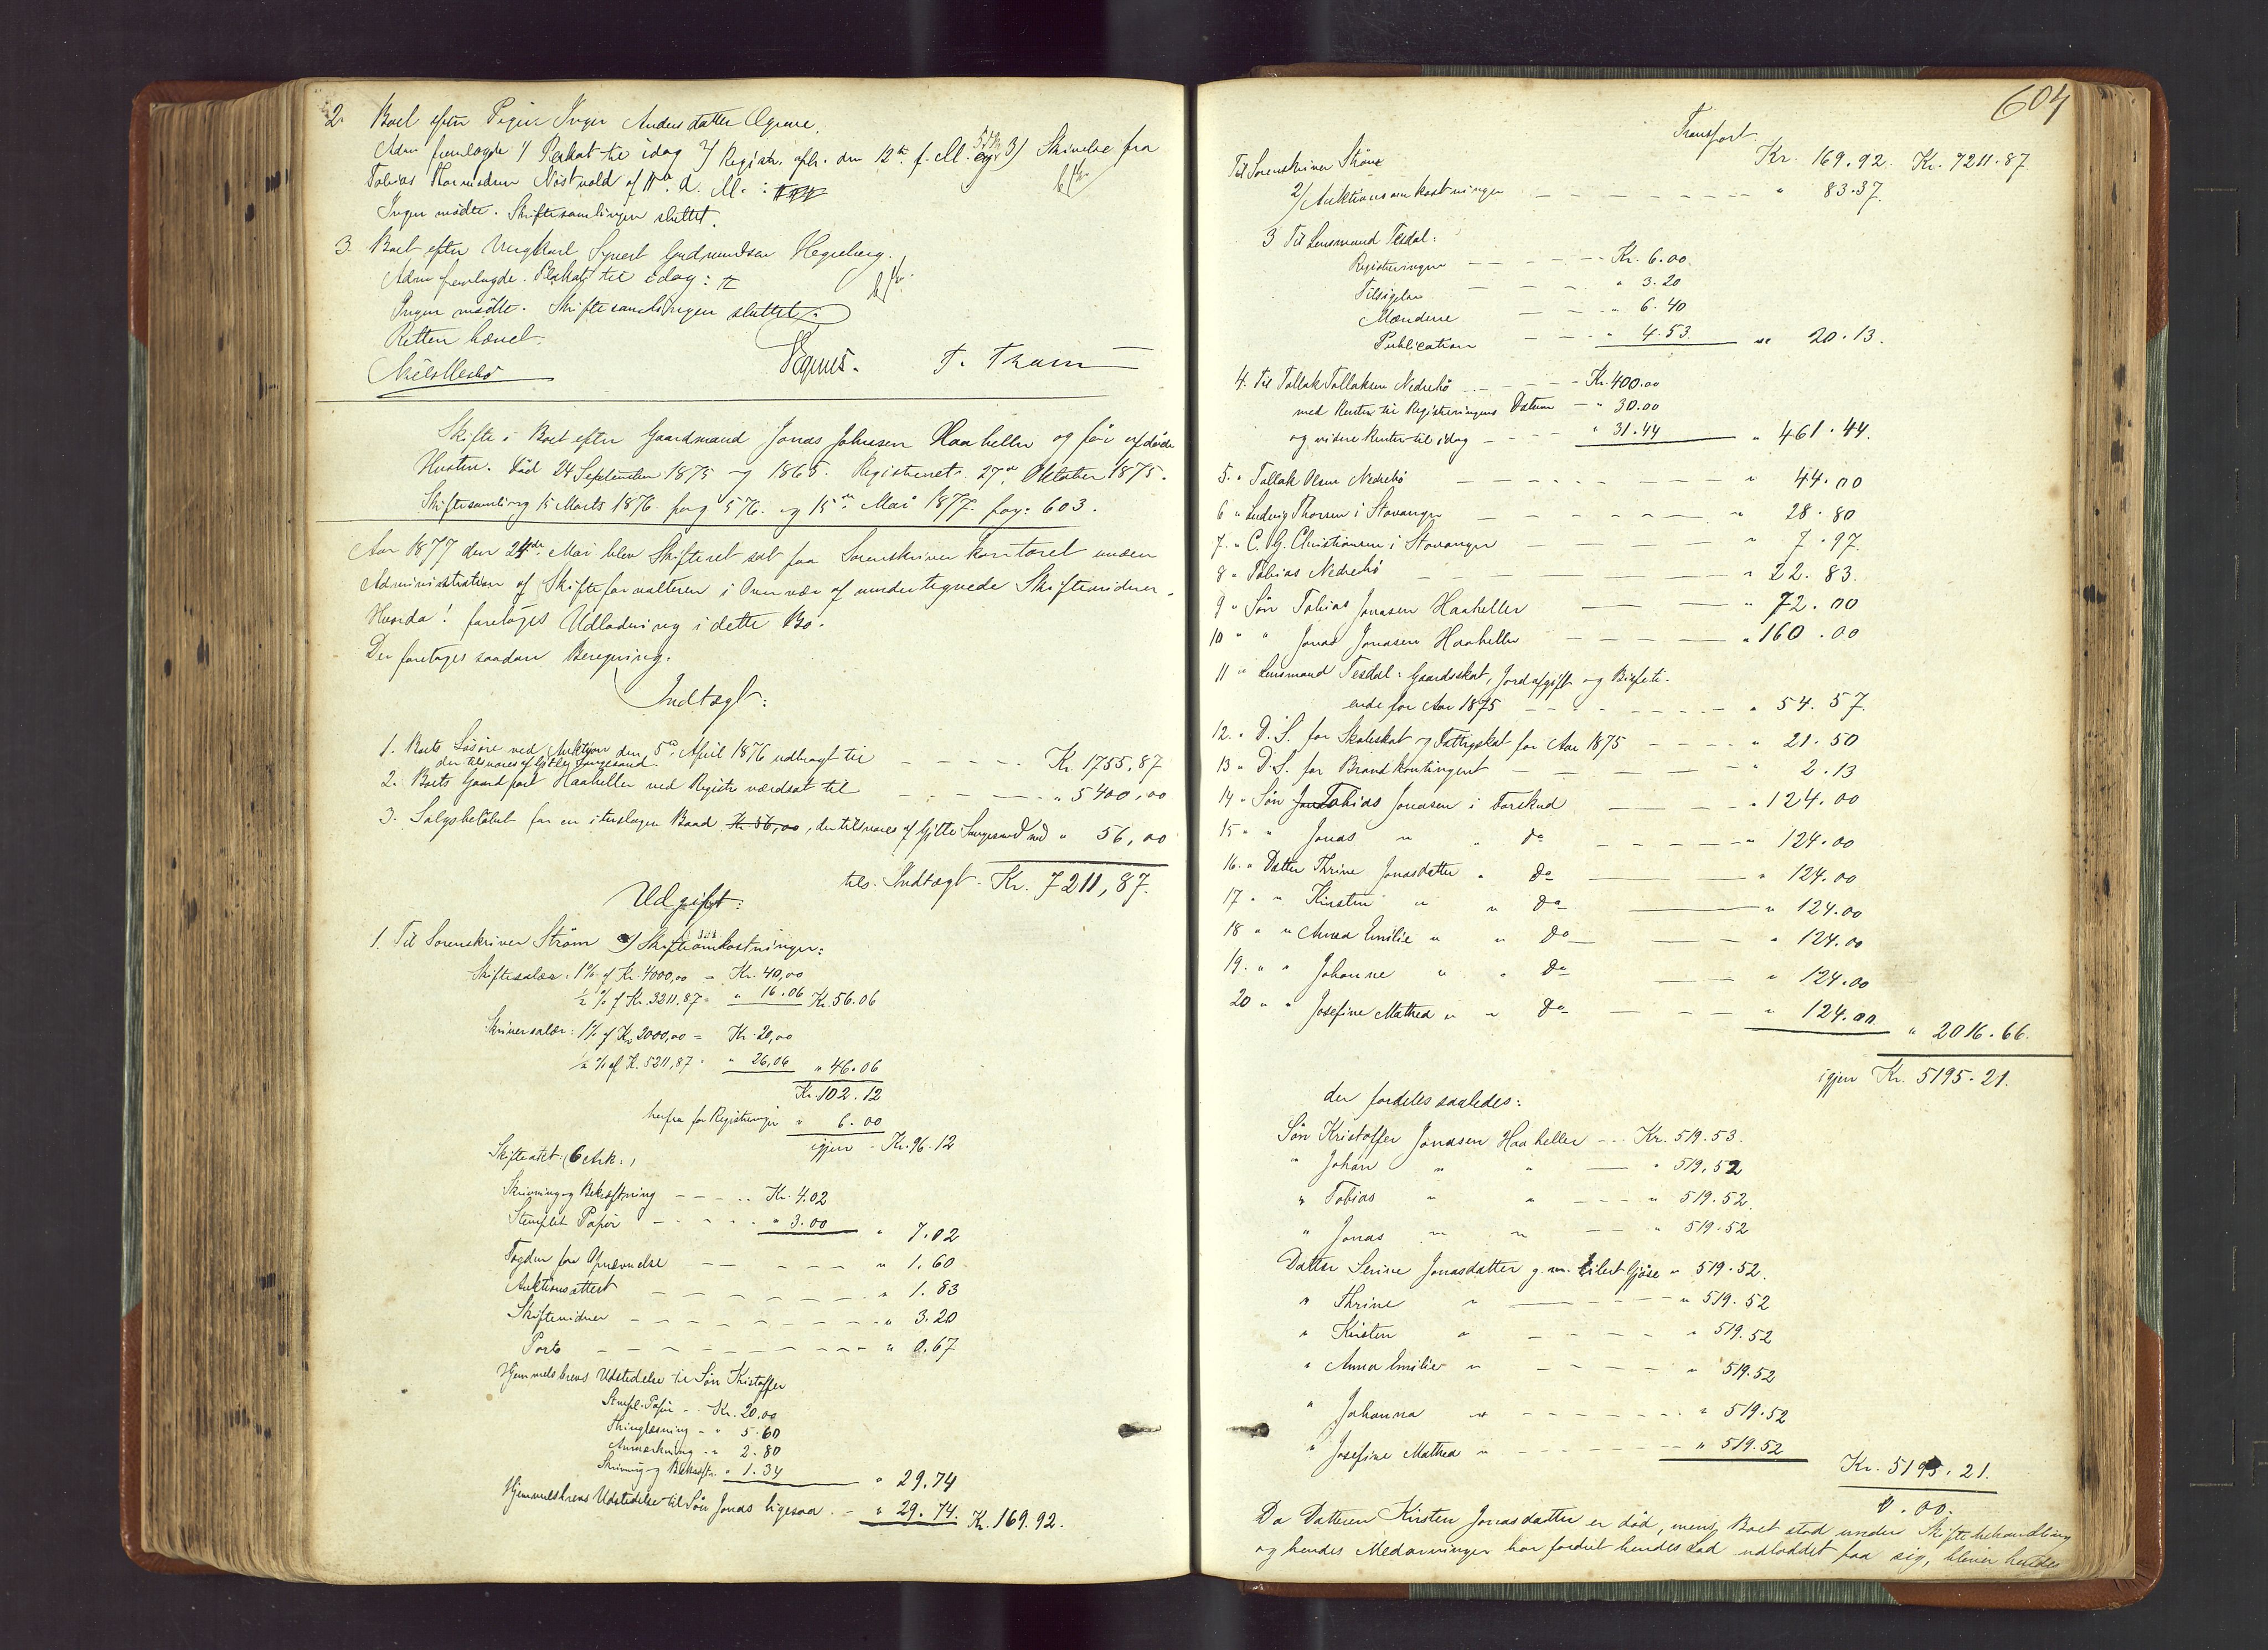 2. Boet efter Pigen Inger Andersdatter
Adm fremlagde 1/ Plakat til idag 2/ Registr. afh. den 12te f. M. 3/ Skrivelse fra
Tobias af 11te d. M. :
Ingen mødte. Skiftesamlingen sluttet.
3. Boet efter Ungkarl Syvert Gudmundsen Hegreberg.
Adm fremlagde. Plakat til idag:
Ingen mødte. Skiftesamlingen sluttet.
Retten hævet.
T. Tram
Skifte i Boet efter Gaardmand Jonas Johnsen Haaheller og før afdøde
Hustru. Død 24 September 1875 og 1865. Registreret 27de Oktober 1875.
Skiftesamling 15 Marts 1876. pag 576. og 15de Mai 1877. pag: 603.
Aar 1877 den 24de Mai blev Skifteret sat paa Sorenskriverkontoret under
Administration af Skifteforvalteren i Overvær af undertegnede Skiftevidner.
Hvorda! foretoges Udlodning i dette Bo.
Der foretoges saadan Beregning.
Indtægt:
1. Boets Løsøre ved Auktion den 5te April 1876 udbragt til
der tilsvares af Gitle Sangesand Kr. 1755,87
2. Boets Gaardpart Haaheller ved Registr værdsat til " 5400,00
3. Salgsbeløbet for en iturslagen Baad Kr 56,00, der tilsvares af Gitle Sangesand med " 56,00
tils. Indtægt Kr. 7211,87.
Udgift:
1. Til Sorenskriver Strøm 1/ Skifteomkostninger:
Skiftesalær: 1% af Kr. 4000,00 = Kr. 40,00
½ % af Kr. 3211,87 = " 16.06 Kr. 56.06
Skriversalær: 1% af Kr. 2000,00 = Kr. 20,00
½ % af Kr. 5211,87 " " 26,06 " 46.06
Kr. 102.12
herfra for Registreringen " 6.00
igjen - Kr. 96.12
Skifteactet (6 Ark:)
Skrivning og Bekræftning Kr. 4.02
Stemplet Papir " 3.00 " 7.02
Fogden for Opnævnelse " 1.60
Auktionsattest " 1.83
Skiftevidner " 3.20
Porto " 0.67
Hjemmelsbrevs Udstedelse til Søn Kristoffer
Stempl. Papir - Kr. 20,00
Thinglæsning - " 5.60
Anmerkning - " 2.80
Skrivning og Bekræftn. " 1.34 " 29.74
Hjemmelsbrevs Udstedelse til Søn Jonas ligesaa. - " 29.74. Kr. 169.92.
604
Transport.
Til Sorenskriver Strøm Kr. 169.92. Kr. 7211.87
2/ Auktionsomkostninger " 83.37.
3 Til Lensmand Tesdal:
Registreringen Kr. 6.00
Tilsigelse " 3.20
Mændene " 6.40
Publication " 4.53. " 20.13.
4. Til Tollak Tollaksen Nedrebø Kr. 400.00
med Renter til Registreringens Datum " 30.00
og videre Renter til idag " 31.44 " 461.44.
5. " Tollak Olsen Nedrebø " 44.00
6 " Ludvig Thorsen i Stavanger " 28.80
7. " C. G. Christiansen i Stavanger " 7.97.
8 " Tobias Nedrebø " 22.83.
9 " Søn Tobias Jonasen Haaheller " 72.00
10 " " Jonas Jonasen Haaheller " 160.00
11 " Lensmand Tesdal: Gaardsskat, Jordafgift og Bisfeti-
ende for Aar 1875 " 54.57.
12. " D. S. for Skoleskat og Fattigskat for Aar 1875 " 21.50
13 " D. S. for Brandkontingent " 2.13
14 " Søn Tobias Jonasen i Forskud " 124.00
15 " " Jonas " " do " 124.00
16. " Datter Thrine Jonasdatter " do " 124.00
17. " " Kirsten " " do " 124.00
18 " " Anna Emilie " " do " 124.00
19. " " Johanne " " do " 124.00
20 " " Josefine Mathea " " do " 124.00 " 2016.66.
igjen Kr. 5195.21.
der fordeles saaledes:
Søn Kristoffer Jonasen Haaheller Kr. 519.53.
" Johan " " " 519.52
" Tobias " " " 519.52.
" Jonas " " " 519.52
Datter Serine Jonasdatter g. m. Eilert Gjøse " 519.52.
" Thrine " " 519.52
" Kirsten " " 519.52
" Anna Emilie " " 519.52
" Johanna " " 519.52
" Josefine Mathea " " 519.52 Kr. 5195.21.
0.00.
Da Datteren Kirsten Jonasdatter er død, mens Boet stod under Skiftebehandling
og hendes Medarvinger har fordret hendes Lod udloddet paa sig, bliver hendes